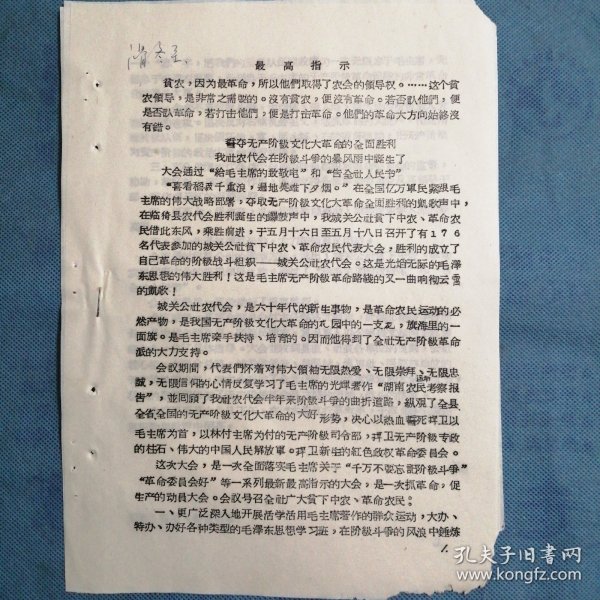 最高指示
貧农，因为最革命，所以他們取得了农会的領导权。……这个貧
农領导，是非常之需要的。沒有貧农，便沒有革命。若否认他們，便
是否认革命，若打击他們，便是打击革命。他們的革命大方向始終沒
有錯。
誓夺无产阶级文化大革命的全面胜利
我社农代会在阶级斗爭的暴风雨中誕生了
大会通过“給毛主席的致敬电”和“告全社人民书”
“喜看稻菽千重浪，遍地英雄下夕烟。”在全国亿万軍民紧跟毛
主席的伟大战略部署，夺取无产阶级文化大革命全面胜利的凱歌声中，
在临猗县农代会胜利誕生的鑼鼓声中，我城关公社貧下中农、革命农
民借此东风，乘胜前进，于五月十六日至五月十八日召开了有１７６
名代表参加的城关公社貧下中农、革命农民代表大会，胜利的成立了
自己革命的阶级战斗组织——城关公社农代会。这是光焰无际的毛泽
东思想的伟大胜利！这是毛主席无产阶级革命路綫的又一曲响彻云霄
的凱歌！
城关公社农代会，是六十年代的新生事物，是革命农民运动的必
然产物，是我国无产阶级文化大革命的花园中的一支花，旗海里的一
面旗。是毛主席亲手扶持、培育的。因而他得到了全社无产阶级革命
派的大力支持。
会议期間，代表們怀着对伟大領袖无限热爱、无限崇拜、无限忠
誠，无限信仰的心情反复学习了毛主席的光輝著作“湖南农民运动考察报
告”，並回顾了我社农代会半年来阶级斗爭的曲折道路，縱观了全县
全省全国的无产阶级文化大革命的大好形势，决心以热血誓死捍卫以
毛主席为首，以林付主席为付的无产阶级司令部，捍卫无产阶级专政
的柱石、伟大的中国人民解放軍。捍卫新生的紅色政权革命委員会。
这次大会，是一次全面落实毛主席关于“千万不要忘記阶级斗爭”
“革命委員会好”等一系列最新最高指示的大会，是一次抓革命，促
生产的动員大会。会议号召全社广大貧下中农、革命农民：
一、更广泛深入地开展活学活用毛主席著作的群众运动，大办、
特办、办好各种类型的毛泽东思想学习班，在阶级斗爭的风浪中錘炼
孔夫子旧书网
www.kongfz.com